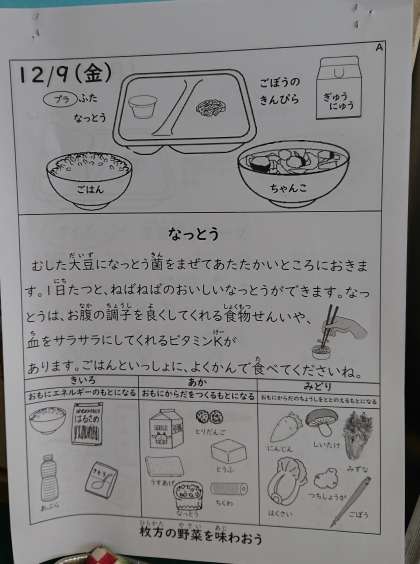 A
12/9(金)
プラ ふた
なっとう
ごぼうの
きんぴら
ぎゅう
にゅう
ごはん
ちゃんこ
なっとう
むした大豆になっとう菌をまぜてあたたかいところにおきま
す。1日たつと、ねばねばのおいしいなっとうができます。なっ
とうは、お腹の調子を良くしてくれる食物せんいや、
血をサラサラにしてくれるビタミンKが
あります。ごはんといっしょに、よくかんで食べてくださいね。
きいろ
おもにエネルギーのもとになる
あか
おもにからだをつくるもとになる
みどり
おもにからだのちょうしをととのえるもとになる
はるさめ
さとう
あぶら
とりだんご
とうふ
うすあげ
ちくわ
なっとう
にんじん
しいたけ
みずな
つちしょうが
はくさい
ごぼう
枚方の野菜を味わおう